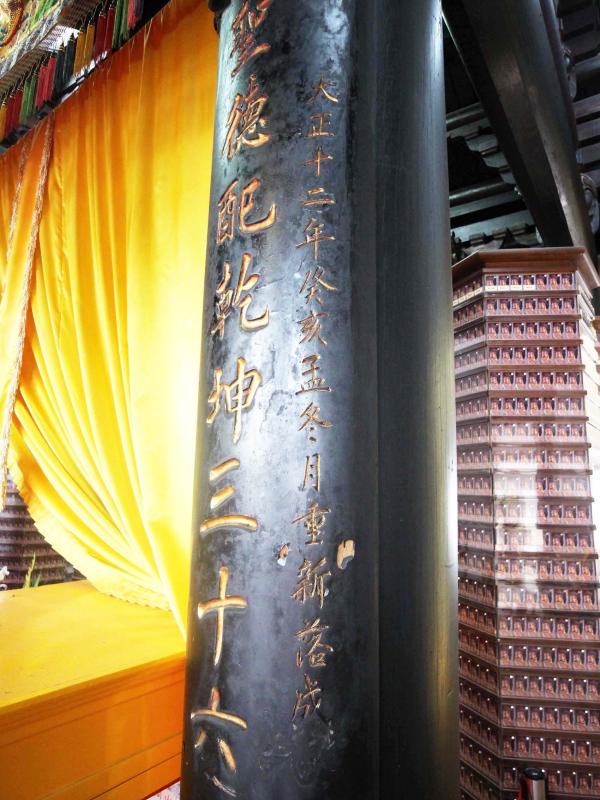 大正十二年癸亥孟冬月重新落成
聖德配乾坤三十六